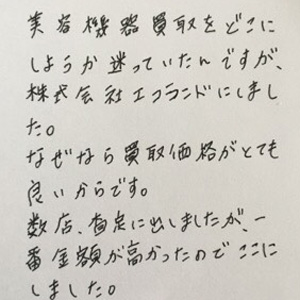 美容機器買取をどこに
しようか迷っていたんですが、
株式会社エコランドにしまし
た。
なぜなら買取価格がとても
良いからです。
数店、査定に出しましたが、一
番金額が高かったのでここに
しました。